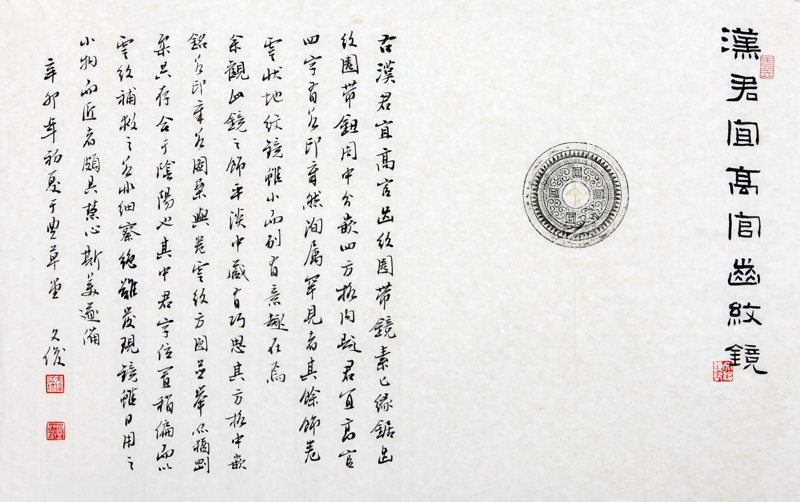 漢君宜高官齒紋鏡
古漢君宜高官齒紋圈帶鏡素己緣鋸齒
紋圈帶鈕周中分嵌四方格内題君宜高官
四字有若印章然洵屬罕見者其餘飾卷
雲狀地紋鏡雖小而别有意趣在焉
余觀此鏡之飾平淡中藏有巧思其方格中嵌
銘若印章若圖案與卷雲紋方圓並舉
柔共存合于陰陽也其中君字位置稍偏而以
雲紋補救之若不細察絶難發現鏡雖日用之
小物而匠者頗具慧心斯美遂備
辛卯年初夏于豐草堂 文俊